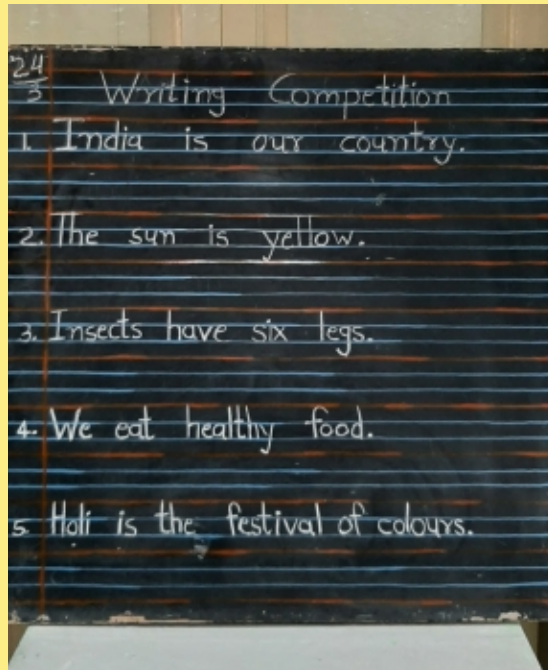 24/3
Writing Competition
1. India is our country.
2. The sun is yellow.
3. Insects have six legs.
4. We eat healthy food.
5. Holi is the festival of colours.